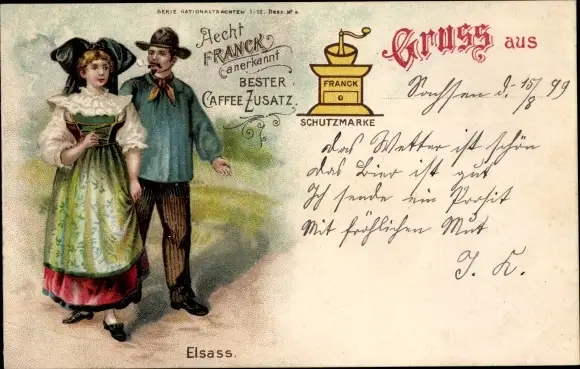 SERIE NATIONALTRACHTEN 1-12. Dess. No
Aecht
FRANCK
anerkannt
BESTER
CAFFEE ZUSATZ.
FRANCK
SCHUTZMARKE
Gruss aus
Sachsen d. 15/8 99
Das Wetter ist schön
das Bier ist gut
Ich sende ein Prosit
Mit fröhlichen Mut
J. K.
Elsass.